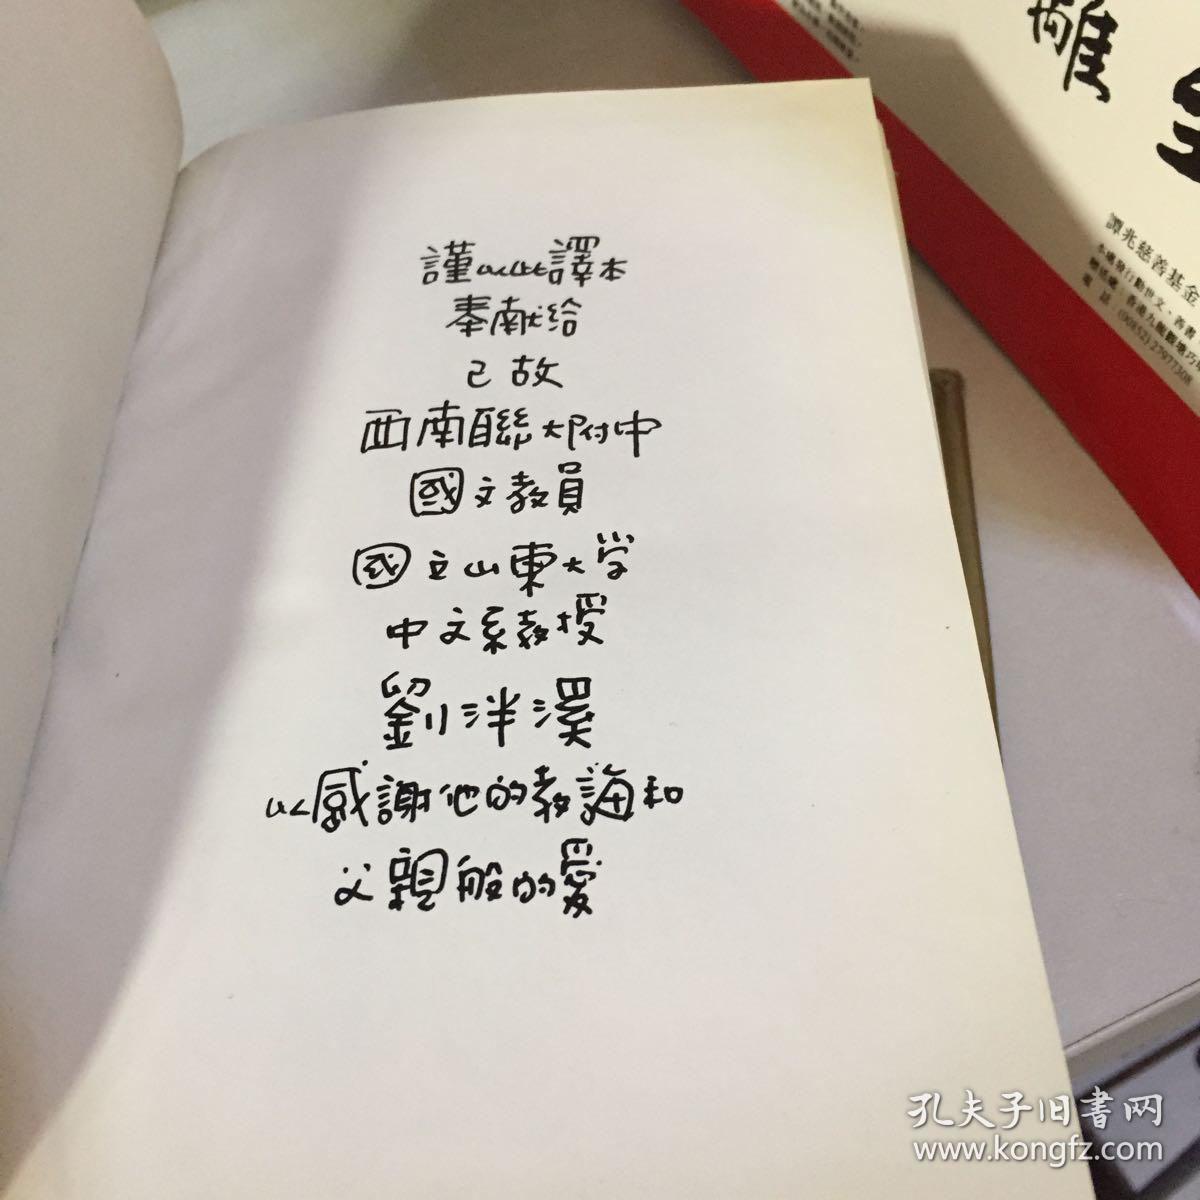 謹以此譯本
奉献给
已故
西南聯大附中
國文教員
國立山東大学
中文系教授
劉泮溪
以感謝他的教誨和
父親般的愛
離
譚兆慈善基金
孔夫子旧书网
www.kongfz.com